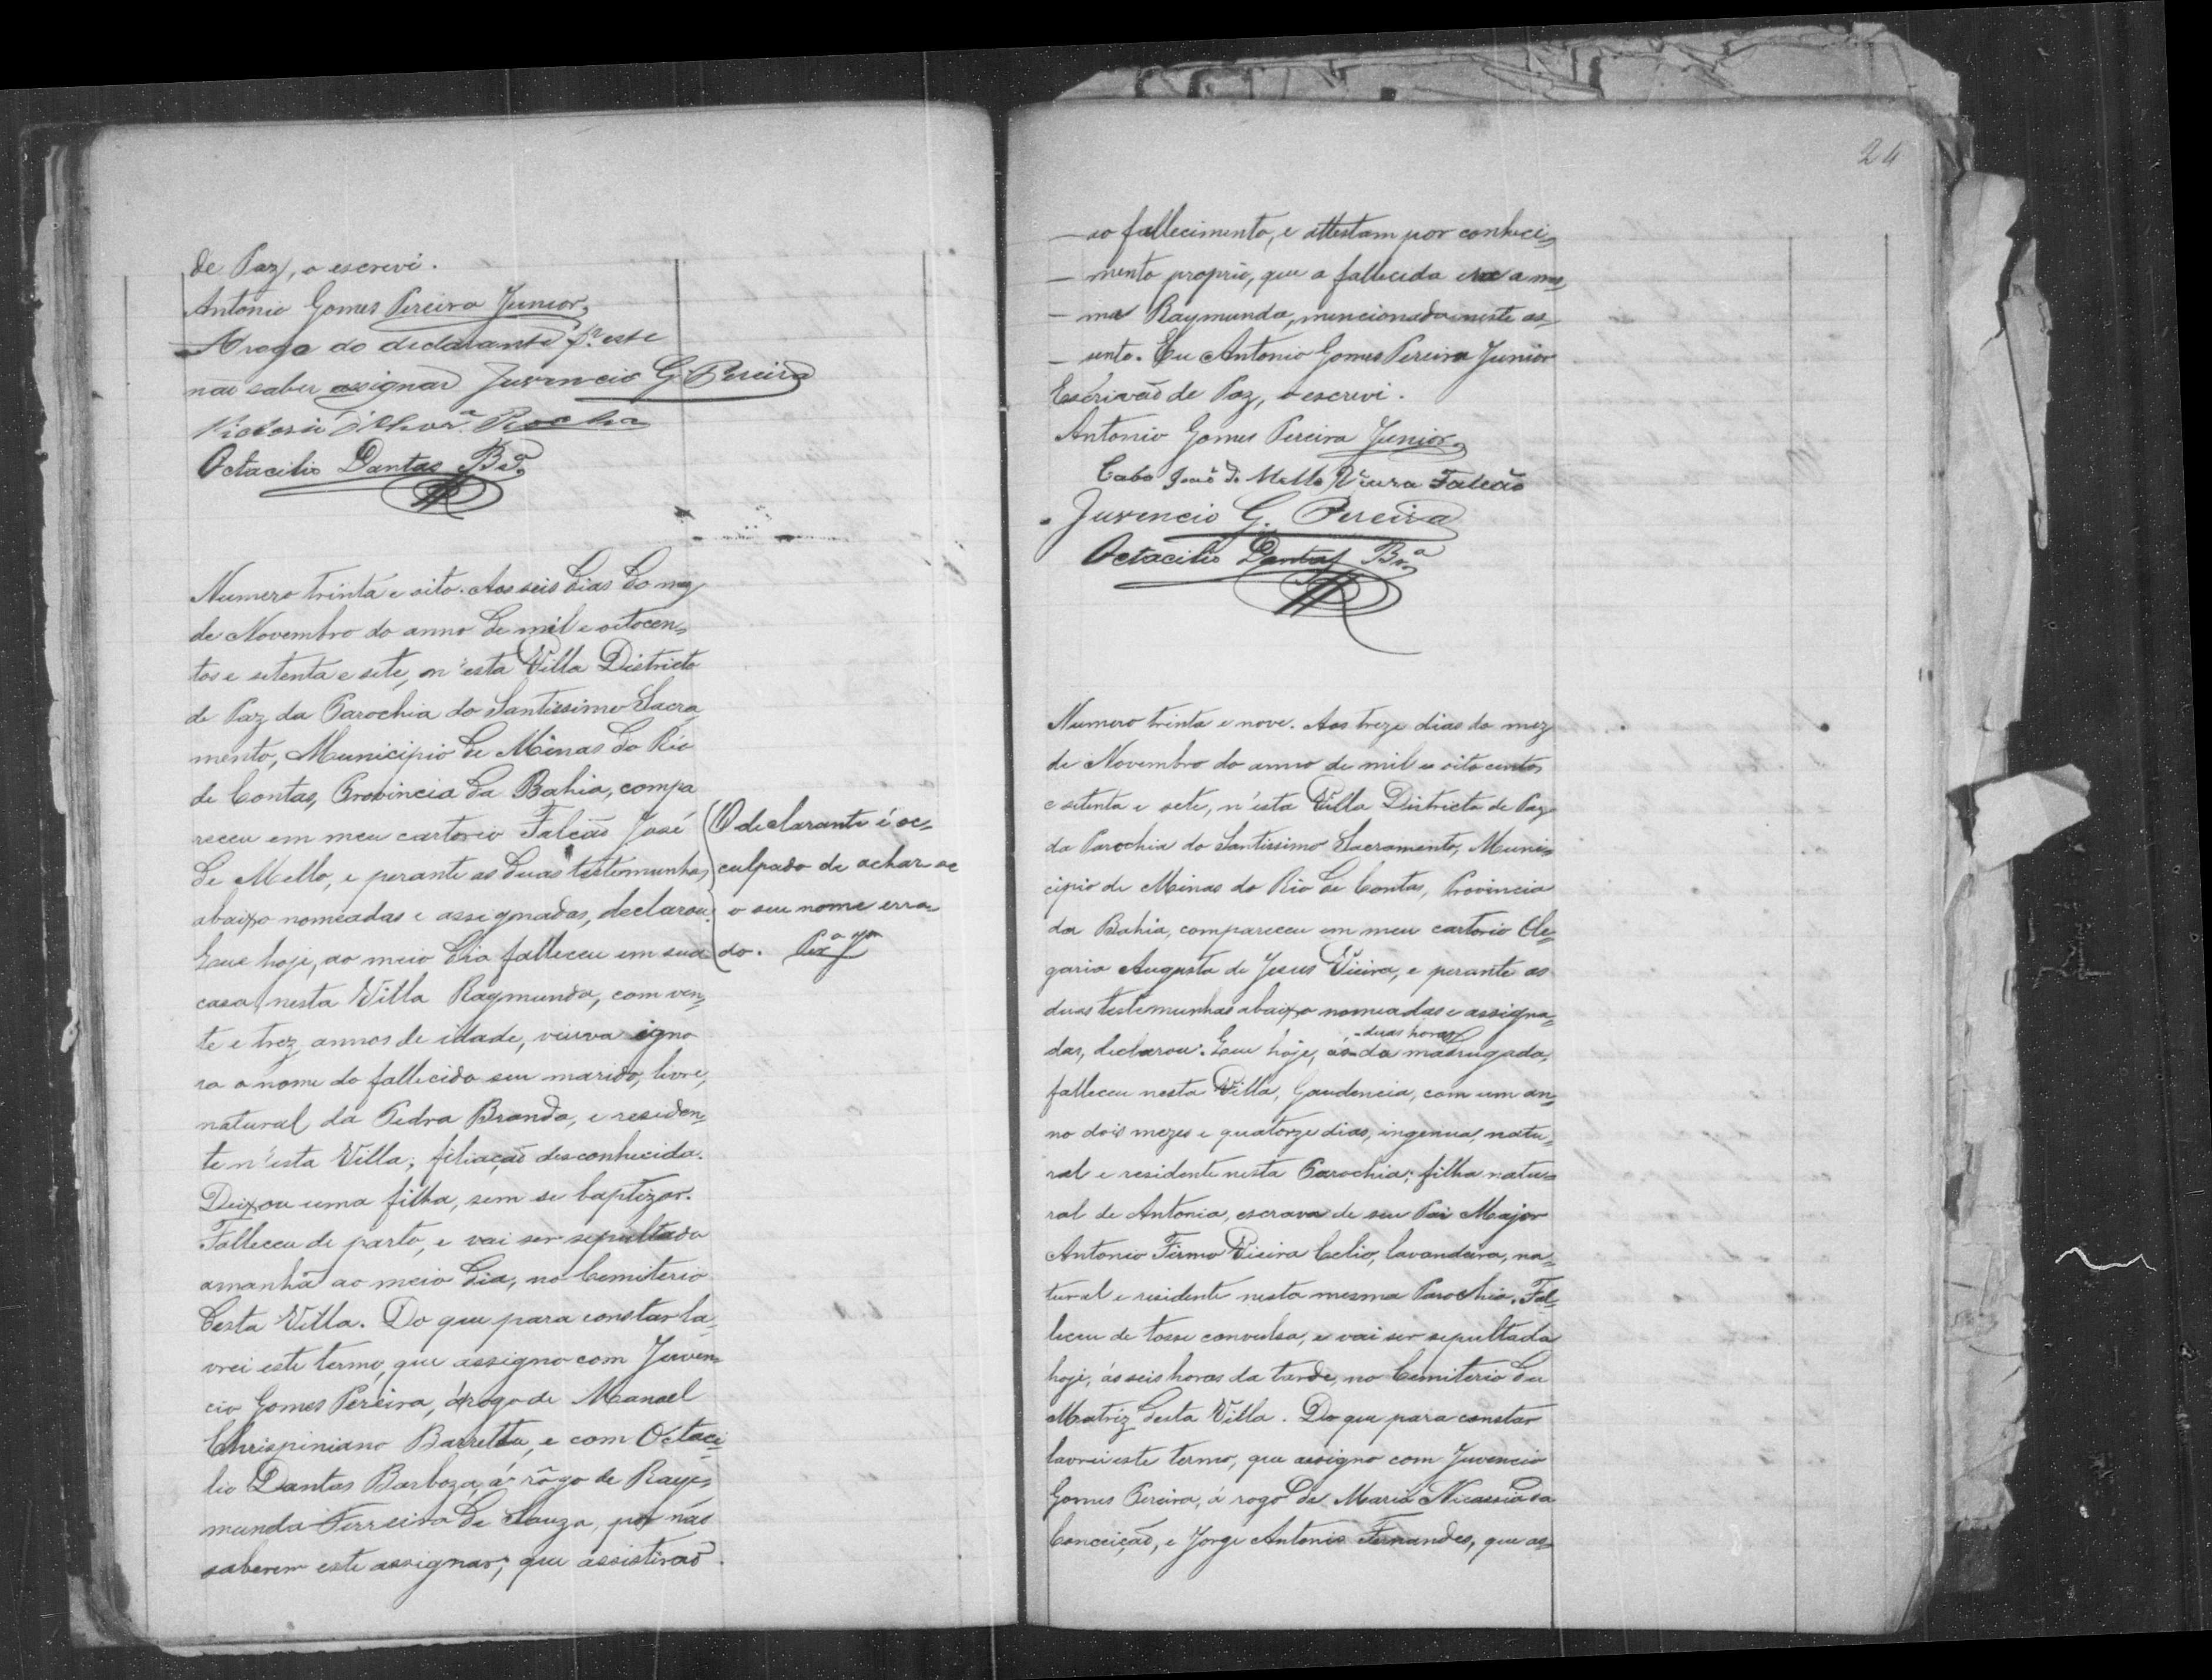 de Paz, o escrevi.
Antonio Gomes Pereira Junior
A rogo do declarante pr. este
não saber assignar Juvencio G. Pereira
Rocha
Octacilio Dantas Bª.
Numero trinta e oito. Aos seis dias do mez
de Novembro do anno de mil e oitocen-
tos e setenta e sete, n'esta Villa Districto
de Paz da Parochia do Santissimo Sacra
mento, Municipio de Minas do Rio
de Contas, Provincia da Bahia, compa
receu em meu cartorio Falcão José
de Mello, e perante as duas testemunhas
abaixo nomeadas e assignadas, declarou:
Que hoje, ao meio dia falleceu em sua
casa, nesta Villa Raymunda, com ven-
te e trez annos de idade, viuva igno
ra o nome do fallecido seu marido, livre,
natural da Pedra Branda, e residen-
te n'esta Villa; filiação desconhecida.
Deixou uma filha, sem se baptizar.
Falleceu de parto, e vai ser sepultada
amanhã ao meio dia, no Cemiterio
desta Villa. Do que para constar la-
vrei este termo, que assigno com Juven-
cio Gomes Pereira, á rogo de Manoel
Chrispiniano Barretto, e com Octaci-
lio Dantas Barboza, á rôgo de Ray-
munda Ferreira de Souza, por não
saberem este assignar; que assistirão
(O declarante é oc-
culpado de achar-se
o seu nome erra-
do.
24
- ao fallecimento, e attestam por conheci-
- mento proprio, que a fallecida era a mes-
- ma Raymunda, mencionada neste as-
- sento. Eu Antonio Gomes Pereira Junior
Escrivão de Paz, o escrevi.
Antonio Gomes Pereira Junior
Cabo José de Mello Falcão
Juvencio G. Pereira
Octacilio Dantas Brª
Numero trinta e nove. Aos treze dias do mez
de Novembro do anno de mil e oito centos
e setenta e sete, n'esta Villa Districto de Paz
da Parochia do Santissimo Sacramento, Muni-
cipio de Minas do Rio de Contas, Provincia
da Bahia, compareceu em meu cartorio Ole-
garia Augusta de Jesus Vieira, e perante as
duas testemunhas abaixo nomeadas e assigna-
duas horas
das, declarou: Que hoje, ás da madrugada,
falleceu nesta Villa, Gaudencia, com um an-
no dois mezes e quatorze dias, ingenua, natu-
ral e residente nesta Parochia; filha natu-
ral de Antonia, escrava de seu Pai Major
Antonio Firmo Vieira Celio, lavandeira, na-
tural e residente nesta mesma Parochia. Fal-
leceu de tosse convulsa, e vai ser sepultada
hoje, ás seis horas da tarde, no Cemiterio da
Matriz desta Villa. Do que para constar
lavrei este termo, que assigno com Juvencio
Gomes Pereira, á rogo de Maria Nicassia da
Conceição, e Jorge Antonio Fernandes, que as-